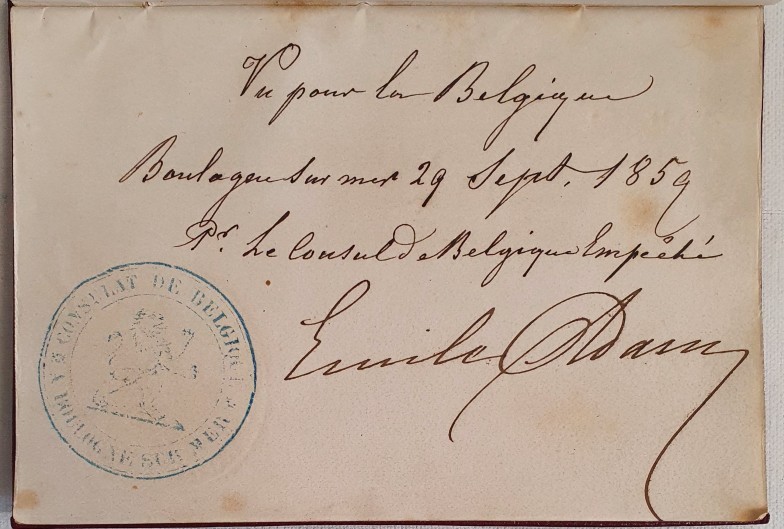 Vu pour la Belgique
Boulogne sur mer 29 Sept. 1859
Pr. Le Consul de Belgique Empêché
Emile Adam
CONSULAT DE BELGIQUE
À BOULOGNE SUR MER